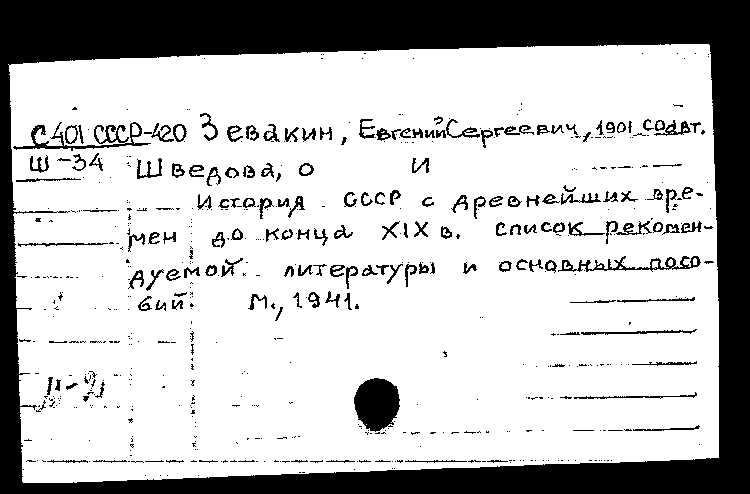 С401 СССР-420 Зевакин, Евгений Сергеевич, 1901 соавт.
Ш-34 Шведова, О И
История СССР с древнейших вре-
мен до конца XIX в. Список рекомен-
дуемой литературы и основных посо-
бий. М., 1941.